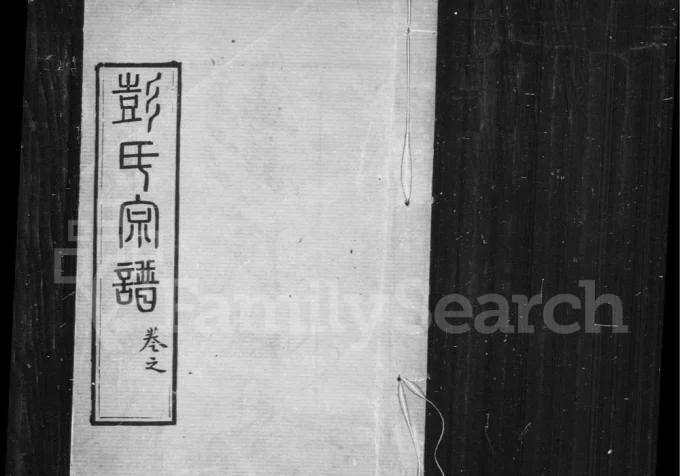 彭氏宗譜
卷之
FamilySearch